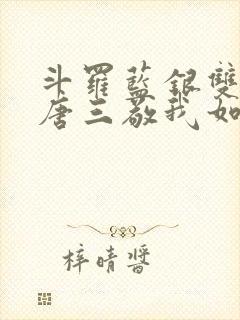 斗羅藍銀雙
唐三敬我如
梓晴醬